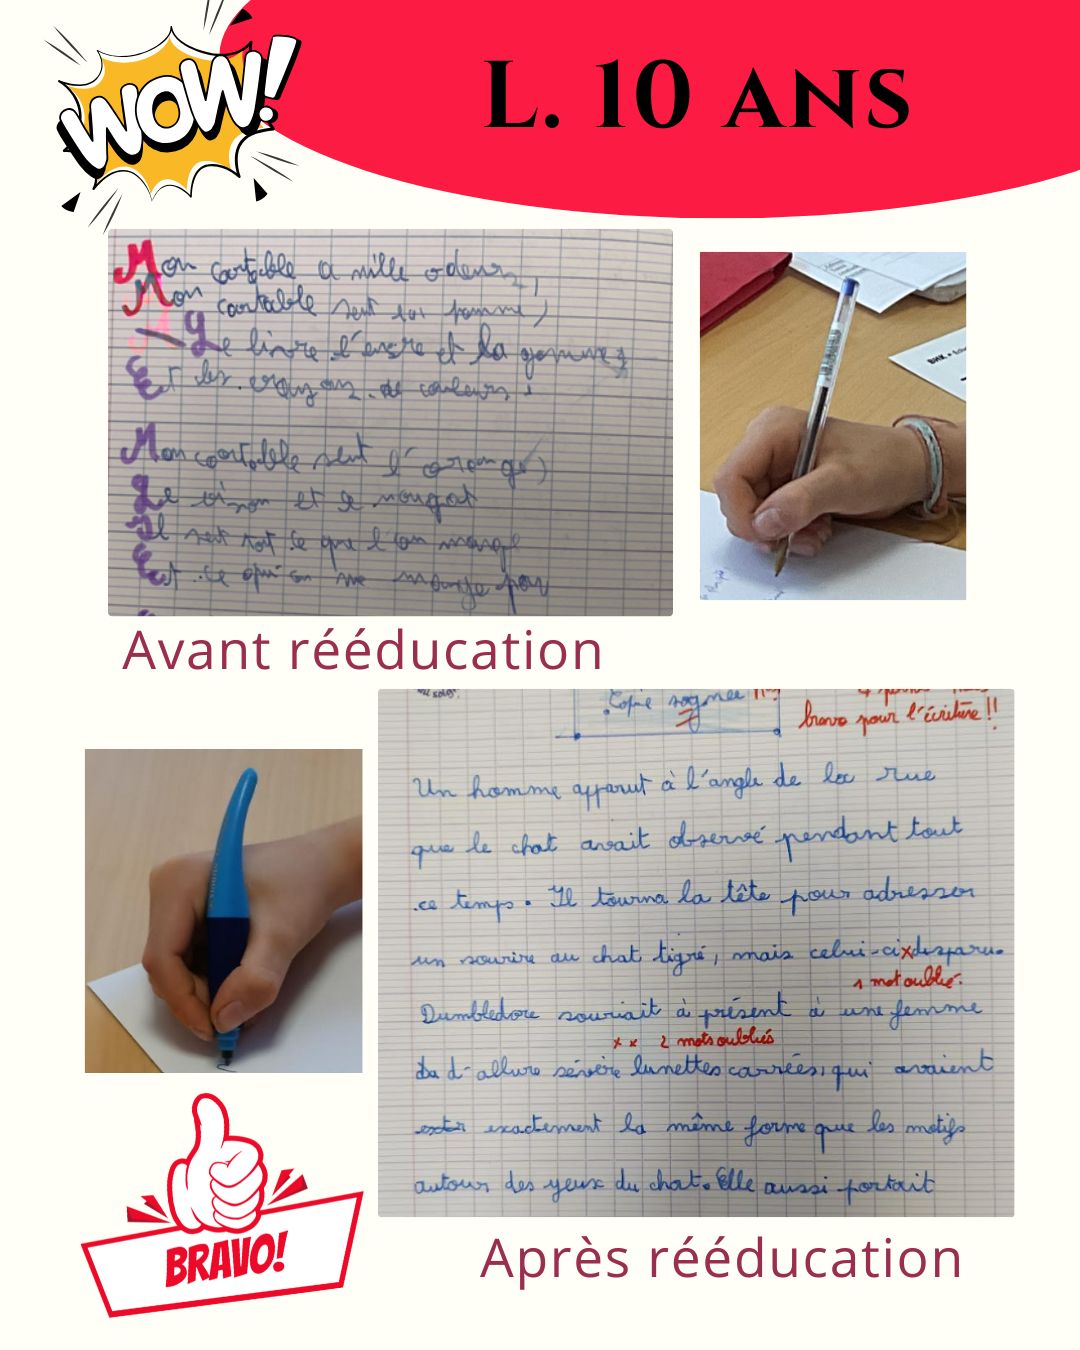 WOW!
L. 10 ANS
Mon cartable a mille odeurs,
Mon cartable sent la pomme,
Le livre l'encre et la gomme
Et les crayons de couleurs.
Mon cartable sent l'orange,
Le bison et le nougat
Il sent tout ce que l'on mange
Et ce qu'on ne mange pas
BHK
Avant rééducation
Copie soignée
bravo pour l'écriture !!
Un homme apparut à l'angle de la rue
que le chat avait observé pendant tout
ce temps. Il tourna la tête pour adresser
un sourire au chat tigré, mais celui-ci x disparu.
1 mot oublié.
Dumbledore souriait à présent à une femme
x x 2 mots oubliés
d'allure sévère lunettes carrées, qui avaient
exactement la même forme que les motifs
autour des yeux du chat. Elle aussi portait
BRAVO!
Après rééducation